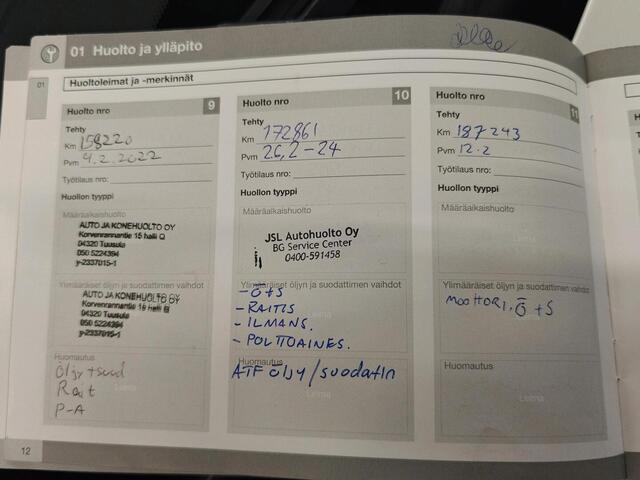 01 Huolto ja ylläpito
01
Huoltoleimat ja -merkinnät
Huolto nro 9
Tehty
Km 158220
Pvm 9.2.2022
Työtilaus nro:
Huollon tyyppi
Määräaikaishuolto
AUTO JA KONEHUOLTO OY
Korvenrannantie 15 halli Q
04320 Tuusula
050 5224394
y-2337015-1
Ylimääräiset öljyn ja suodattimen vaihdot
AUTO JA KONEHUOLTO OY
Korvenrannantie 15 halli
04320 Tuusula
050 5224394
y-2337015-1
Huomautus
Öljy + suod
Rait
P-A
Leima
Huolto nro 10
Tehty
Km 172861
Pvm 26.2-24
Työtilaus nro:
Huollon tyyppi
Määräaikaishuolto
JSL Autohuolto Oy
BG Service Center
0400-591458
Ylimääräiset öljyn ja suodattimen vaihdot
- Ö+S
- RAITIS
- ILMANS.
- POLTTOAINES.
Leima
Huomautus
ATF öljy/suodatin
Leima
Huolto nro 11
Tehty
Km 187243
Pvm 12.2
Työtilaus nro:
Huollon tyyppi
Määräaikaishuolto
Ylimääräiset öljyn ja suodattimen vaihdot
MOOTTORI. Ö+S
Leima
Huomautus
Leima
12